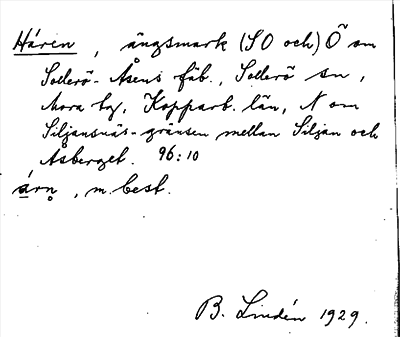 Håren, ängsmark (SO och) Ö om
Sollerö-Åsens fäb., Sollerö sn,
Mora tg, Kopparb. län, N om
Siljansnäs-gränsen mellan Siljan och
Åsberget. 96:10
årn̥, m. best.
B. Lindén 1929.